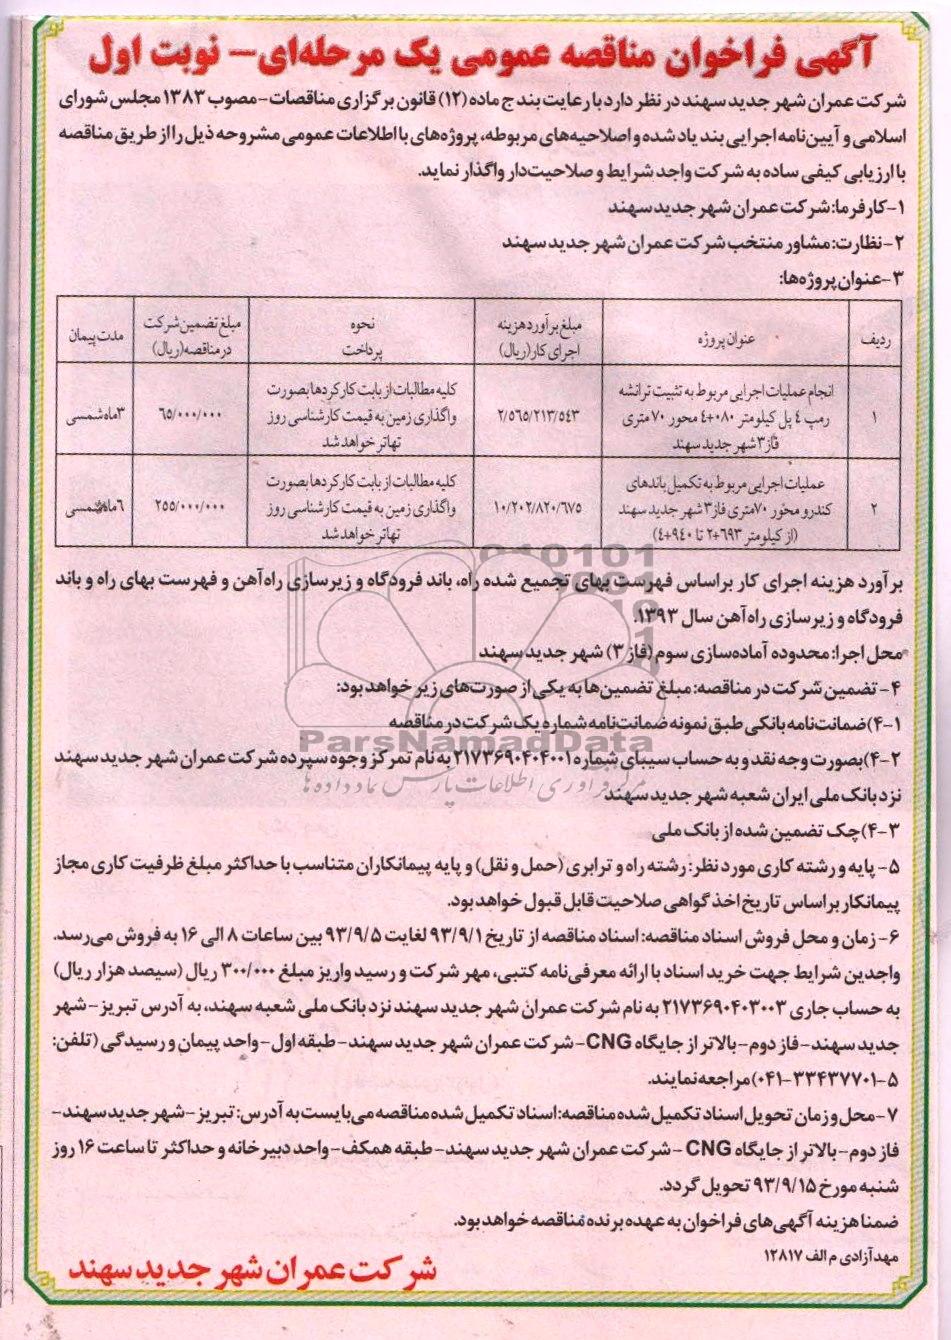 آگهی فراخوان مناقصه عمومی یک مرحله‌ای – نوبت اول
شرکت عمران شهر جدید سهند در نظر دارد با رعایت بند ج ماده (۱۲) قانون برگزاری مناقصات – مصوب ۱۳۸۳ مجلس شورای
اسلامی و آیین‌نامه اجرایی بند یاد شده و اصلاحیه‌های مربوطه، پروژه‌های با اطلاعات عمومی مشروحه ذیل را از طریق مناقصه
با ارزیابی کیفی ساده به شرکت واجد شرایط و صلاحیت‌دار واگذار نماید.
۱-کارفرما: شرکت عمران شهر جدید سهند
۲-نظارت: مشاور منتخب شرکت عمران شهر جدید سهند
۳-عنوان پروژه‌ها:
ردیف
عنوان پروژه
مبلغ برآورد هزینه
اجرای کار (ریال)
نحوه
پرداخت
مبلغ تضمین شرکت
در مناقصه (ریال)
مدت پیمان
۱
انجام عملیات اجرایی مربوط به تثبیت ترانشه
رمپ ٤ پل کیلومتر ۰۸۰+٤ محور ۷۰ متری
فاز۳ شهر جدید سهند
۲/۵٦۵/۲۱۳/۵٤۳
کلیه مطالبات از بابت کارکردها بصورت
واگذاری زمین به قیمت کارشناسی روز
تهاتر خواهد شد
٦۵/۰۰۰/۰۰۰
۳ماه شمسی
۲
عملیات اجرایی مربوط به تکمیل باندهای
کندرو محور ۷۰متری فاز۳ شهر جدید سهند
(از کیلومتر ٦۹۳+۲ تا ۹٤۰+٤)
۱۰/۲۰۲/۸۲۰/٦۷۵
کلیه مطالبات از بابت کارکردها بصورت
واگذاری زمین به قیمت کارشناسی روز
تهاتر خواهد شد
۲۵۵/۰۰۰/۰۰۰
٦ماه شمسی
برآورد هزینه اجرای کار براساس فهرست بهای تجمیع شده راه، باند فرودگاه و زیرسازی راه‌آهن و فهرست بهای راه و باند
فرودگاه و زیرسازی راه‌آهن سال ۱۳۹۳.
محل اجرا: محدوده آماده‌سازی سوم (فاز ۳) شهر جدید سهند
۴- تضمین شرکت در مناقصه: مبلغ تضمین‌ها به یکی از صورت‌های زیر خواهد بود:
۴-۱)ضمانت‌نامه بانکی طبق نمونه ضمانت‌نامه شماره یک شرکت در مناقصه
ParsNamadData
۴-۲)بصورت وجه نقد و به حساب سیبای شماره ۲۱۷۳۶۹۰۴۰۴۰۰۱ به نام تمرکز وجوه سپرده شرکت عمران شهر جدید سهند
مرکز فرآوری اطلاعات پارس نماد داده‌ها
نزد بانک ملی ایران شعبه شهر جدید سهند
۴-۳)چک تضمین شده از بانک ملی
۵- پایه و رشته کاری مورد نظر: رشته راه و ترابری (حمل و نقل) و پایه پیمانکاران متناسب با حداکثر مبلغ ظرفیت کاری مجاز
پیمانکار براساس تاریخ اخذ گواهی صلاحیت قابل قبول خواهد بود.
۶- زمان و محل فروش اسناد مناقصه: اسناد مناقصه از تاریخ ۹۳/۹/۱ لغایت ۹۳/۹/۵ بین ساعات ۸ الی ۱۶ به فروش می‌رسد.
واجدین شرایط جهت خرید اسناد با ارائه معرفی‌نامه کتبی، مهر شرکت و رسید واریز مبلغ ۳۰۰/۰۰۰ ریال (سیصد هزار ریال)
به حساب جاری ۲۱۷۳۶۹۰۴۰۳۰۰۳ به نام شرکت عمران شهر جدید سهند نزد بانک ملی شعبه سهند، به آدرس تبریز- شهر
جدید سهند- فاز دوم- بالاتر از جایگاه CNG- شرکت عمران شهر جدید سهند- طبقه اول- واحد پیمان و رسیدگی (تلفن:
۵-۰۴۱-۳۳۴۳۷۷۰۱) مراجعه نمایند.
۷- محل و زمان تحویل اسناد تکمیل شده مناقصه: اسناد تکمیل شده مناقصه می‌بایست به آدرس: تبریز- شهر جدید سهند-
فاز دوم- بالاتر از جایگاه CNG - شرکت عمران شهر جدید سهند- طبقه همکف- واحد دبیرخانه و حداکثر تا ساعت ۱۶ روز
شنبه مورخ ۹۳/۹/۱۵ تحویل گردد.
ضمنا هزینه آگهی‌های فراخوان به عهده برنده مناقصه خواهد بود.
مهد آزادی م الف ۱۲۸۱۷
شرکت عمران شهر جدید سهند